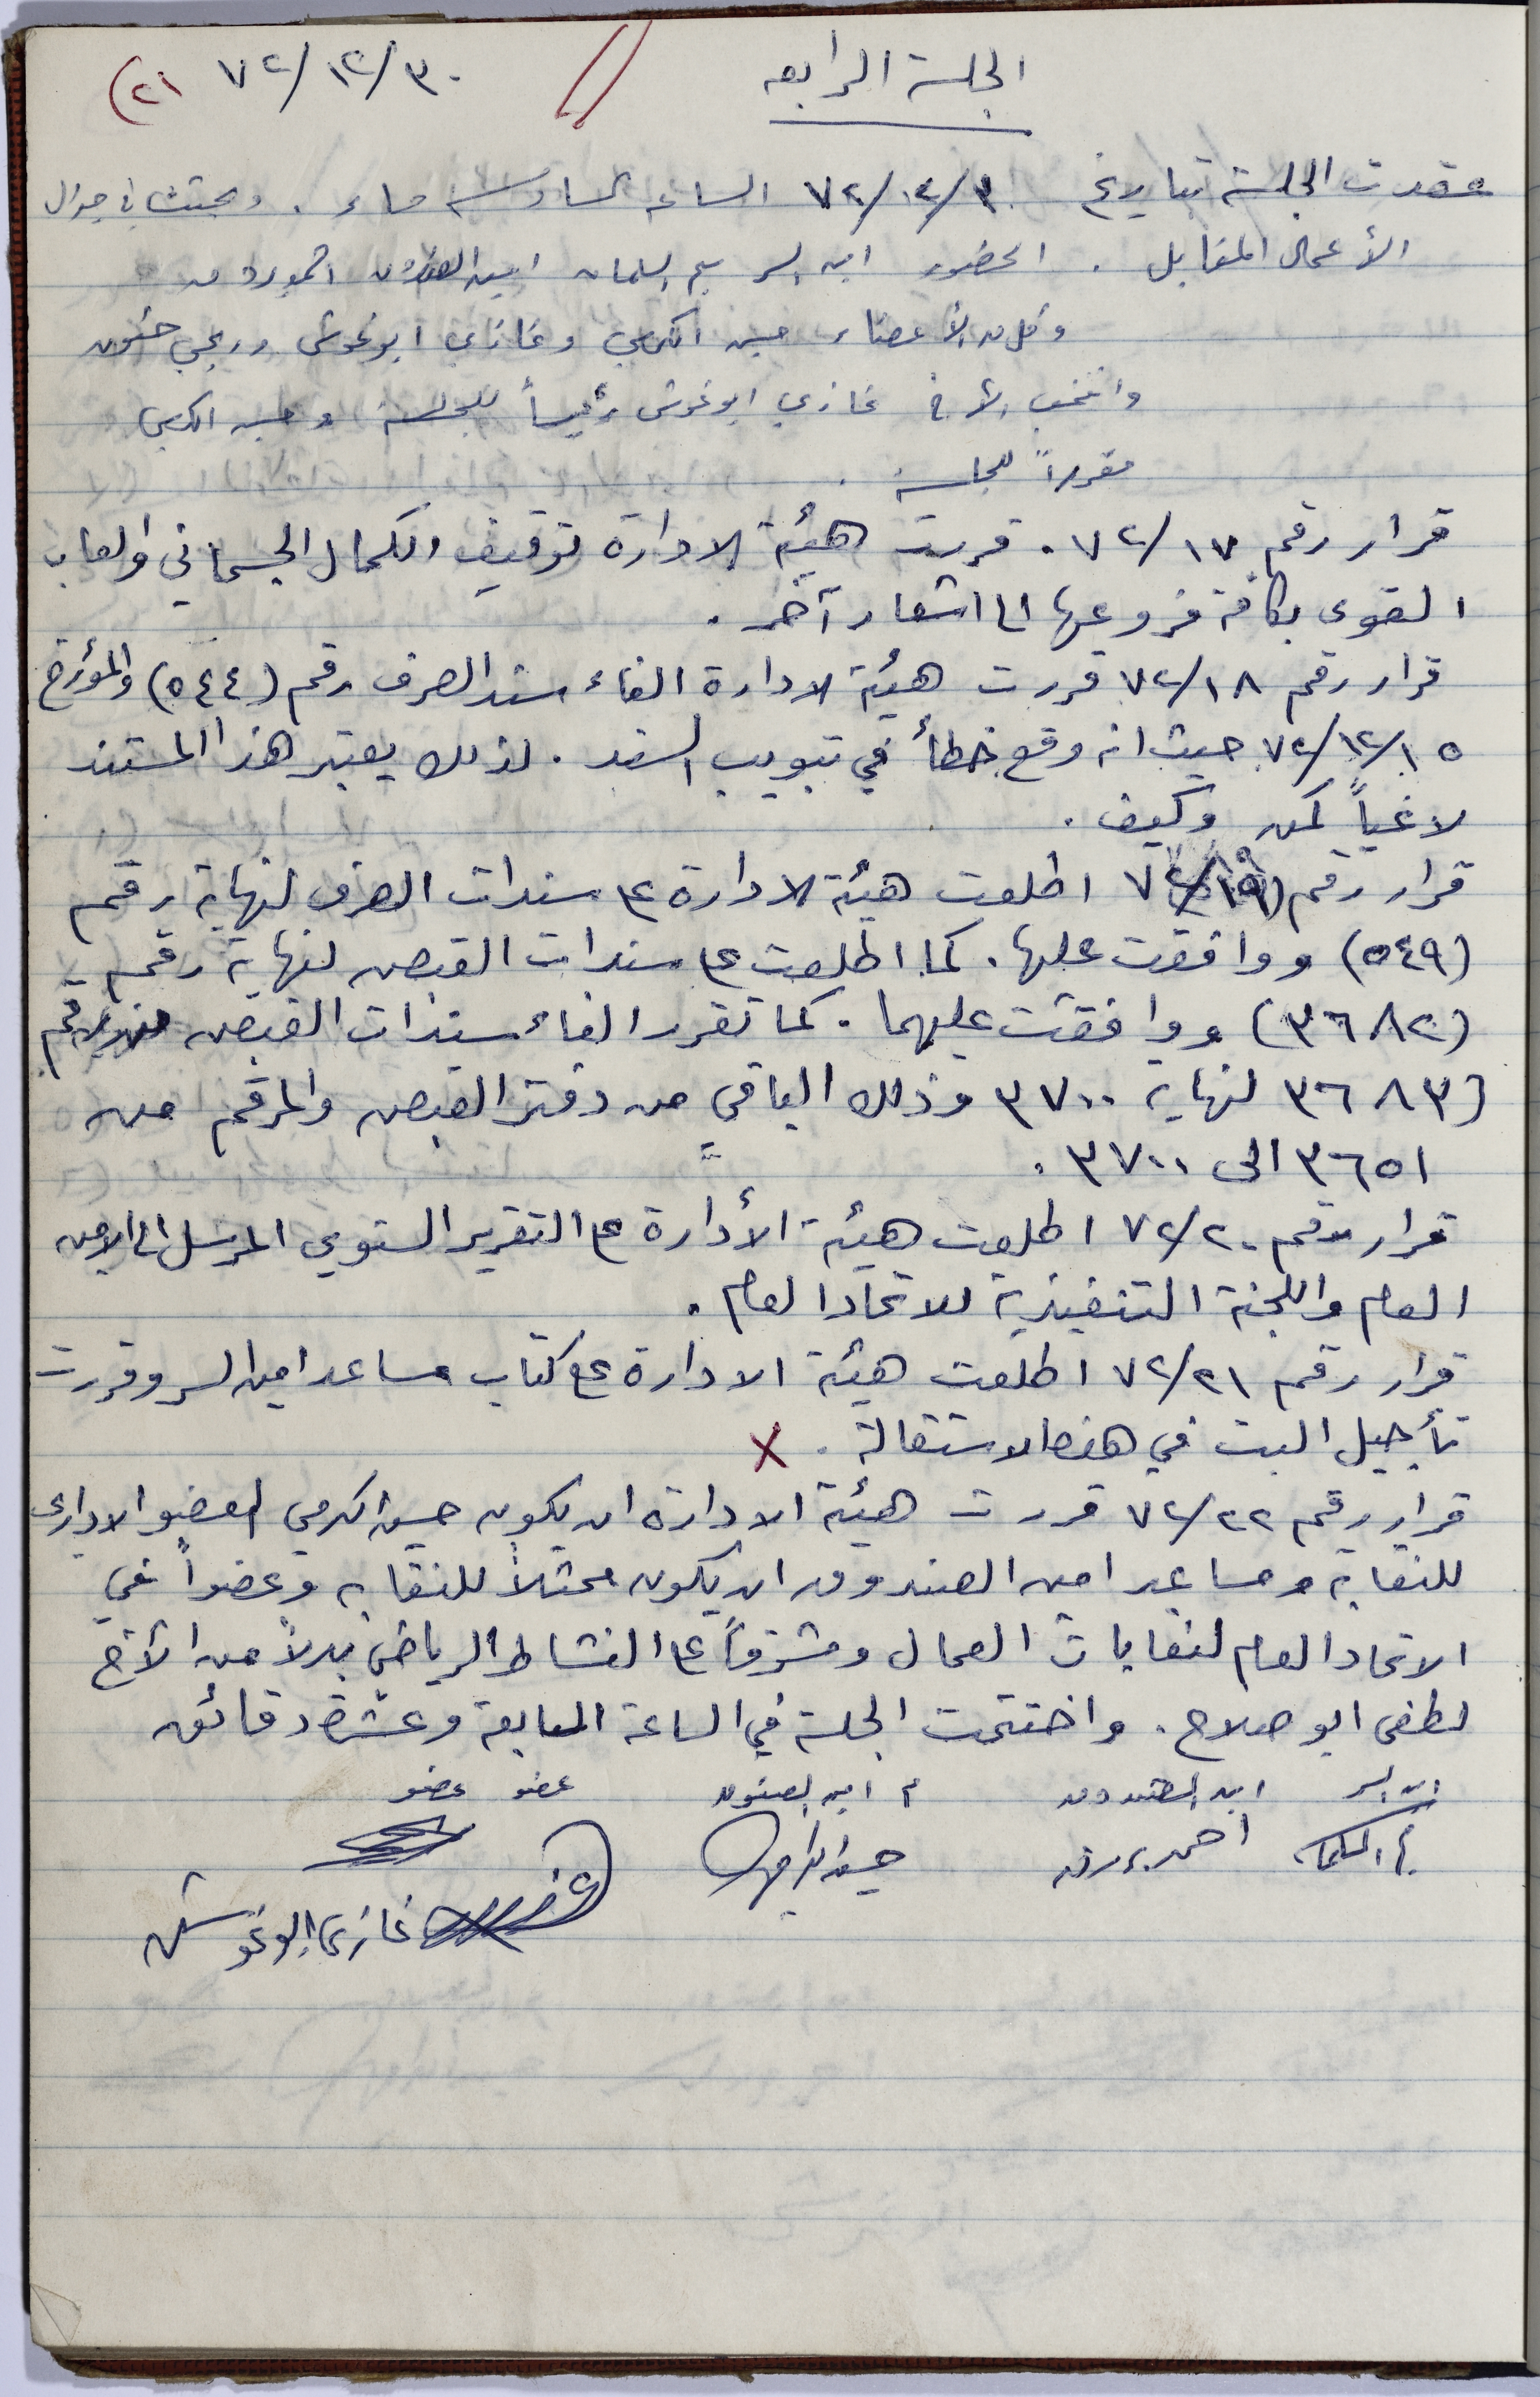 الجلسة الرابعه // ٣٠/١٢/٧٢ (٢١
عقدت الجلسة بتاريخ ٣٠/١٢/٧٢ الساعه السادسه مساء . وبحثت في جدول
الأعمال المقابل . الحضور امين السر السلمان امين الصندوق
وكل من الأعضاء حسن الكرمي وغازي ابوغوش و حنون
وانتخب الأخ غازي ابوغوش رئيساً للجلسة وحسن الكرمي
مقرراً للجلسة .
قرار رقم ١٧/٧٢ . قررت هيئة الادارة توقيف الكمال الجسماني والعاب
القوى بكافة فروعها الى اشعار آخر .
قرار رقم ١٨/٧٢ قررت هيئة الادارة الغاء سند الصرف رقم (٥٤٤) والمؤرخ
١٥/١٢/٧٢ حيث انه وقع خطأ في تبويب السند . لذلك يعتبر هذا المستند
لاغياً .
قرار رقم (١٩/٧٢ اطلعت هيئة الادارة على سندات الصرف لنهاية رقم
(٥٤٩) ووافقت عليها . كما اطلعت على سندات القبض لنهاية رقم
(٣٦٨٢) ووافقت عليهما . كما تقرر الغاء سندات القبض من رقم
(٣٦٨٣ لنهاية ٣٧٠٠ وذلك الباقي من دفتر القبض والمرقم من
٣٦٥١ الى ٣٧٠٠ .
قرار رقم ٢٠/٧٢ اطلعت هيئة الأدارة على التقرير السنوي المرسل الى الامين
العام واللجنة التنفيذية للاتحاد العام .
قرار رقم ٢١/٧٢ اطلعت هيئة الادارة على كتاب مساعد امين السر وقررت
تأجيل البت في هذه الاستقالة . X
قرار رقم ٢٢/٧٢ قررت هيئة الادارة ان يكون حسن الكرمي العضو الاداري
للنقابة ومساعد امين الصندوق ان يكون ممثلاً للنقابه وعضواً في
الاتحاد العام لنقابات العمال ومشرفاً على النشاط الرياضي بدلاً من الأخ
لطفي ابو صلاح . واختتمت الجلسة في الساعة السابعة وعشرة دقائق
امين السر امين الصندوق م امين الصندوق عضو عضو
احمد حسن الكرمي
غازي ابوغوش